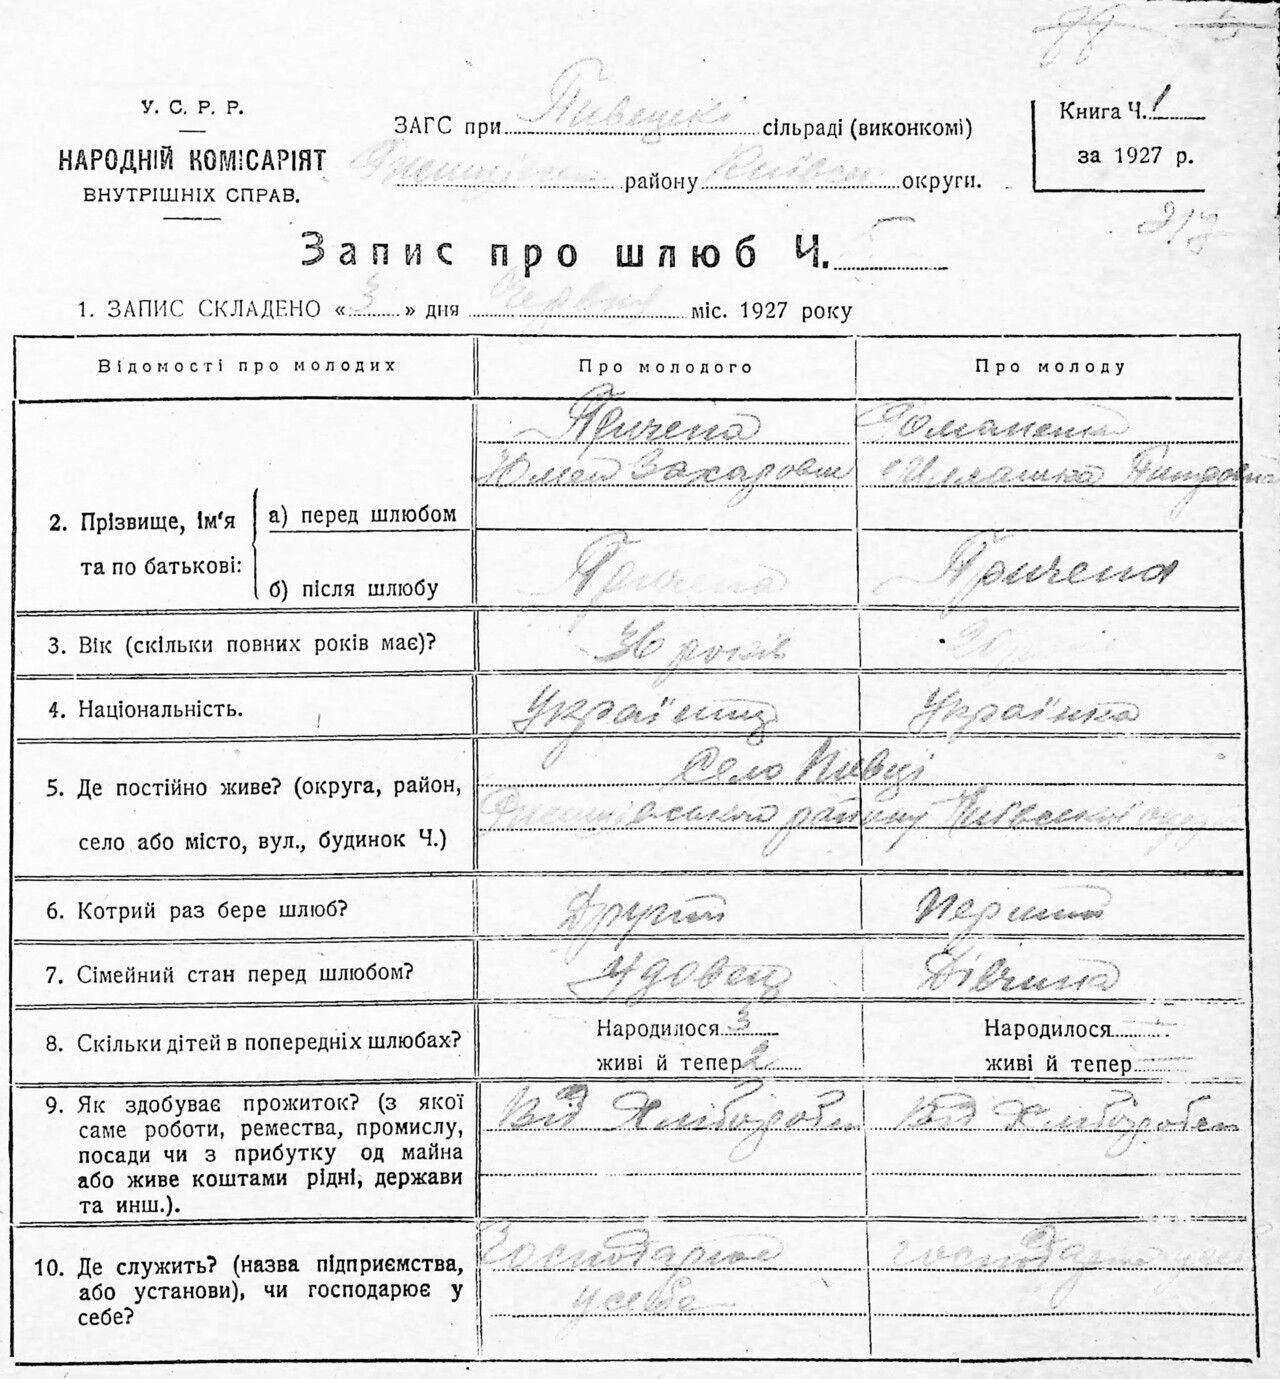 У. С. Р. Р.
НАРОДНІЙ КОМІСАРІЯТ
ВНУТРІШНІХ СПРАВ.
ЗАГС при Пивецькі сільраді (виконкомі)
району Київськ округи.
Книга Ч. 1
за 1927 р.
Запис про шлюб Ч.
1. ЗАПИС СКЛАДЕНО « 3 » дня Червня міс. 1927 року
Відомості про молодих Про молодого Про молоду
2. Прізвище, ім'я та по батькові:
а) перед шлюбом
Причепа
Захарович
Романенко
б) після шлюбу
Причепа Причепа
3. Вік (скільки повних років має)? 36 років 20 років
4. Національність. Українець Українка
5. Де постійно живе? (округа, район,
село або місто, вул., будинок Ч.)
Село Пивці
району Київської округи
6. Котрий раз бере шлюб? Другий Перший
7. Сімейний стан перед шлюбом? Удовец Дівчина
8. Скільки дітей в попередніх шлюбах?
Народилося 3 Народилося -
живі й тепер 2 живі й тепер -
9. Як здобуває прожиток? (з якої
саме роботи, ремества, промислу,
посади чи з прибутку од майна
або живе коштами рідні, держави
та инш.).
Від Хліборобст Від Хліборобст
10. Де служить? (назва підприємства,
або установи), чи господарює у
себе?
Господарює
у себе